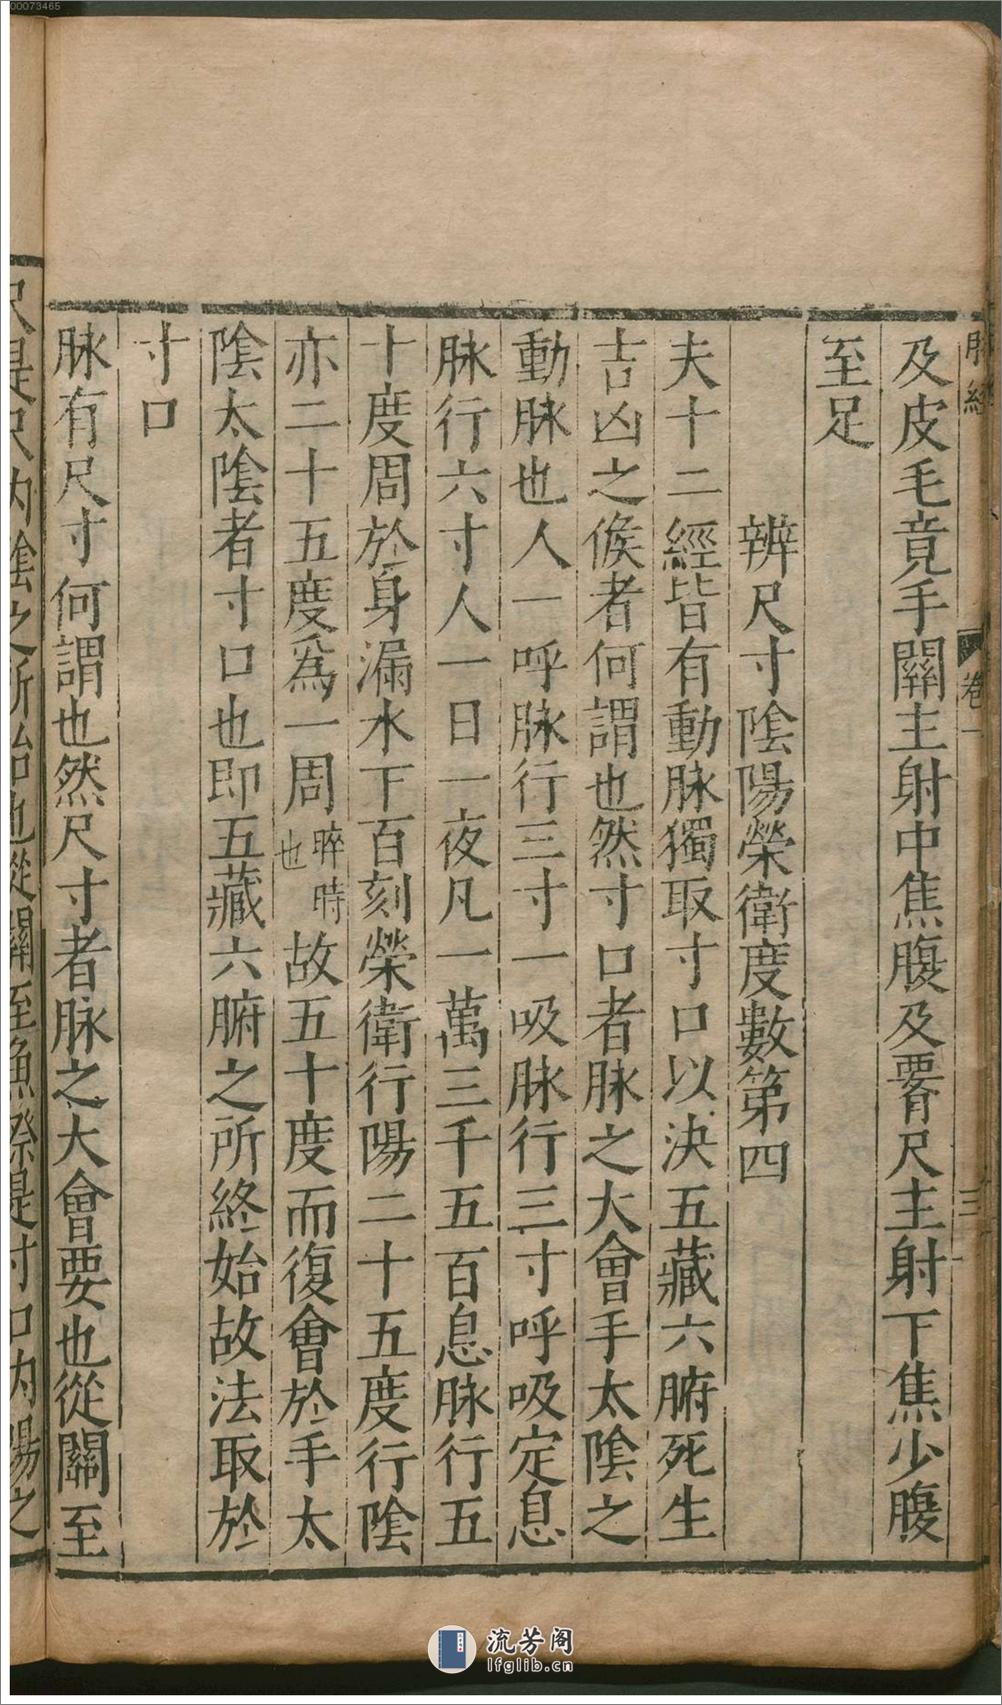 00073465
脉經 卷一 三
及皮毛竟手關主射中焦腹及𦝫尺主射下焦少腹
至足
辨尺寸陰陽榮衛度數第四
夫十二經皆有動脉獨取寸口以決五藏六腑死生
吉凶之候者何謂也然寸口者脉之大會手太陰之
動脉也人一呼脉行三寸一吸脉行三寸呼吸定息
脉行六寸人一日一夜凡一萬三千五百息脉行五
十度周於身漏水下百刻榮衛行陽二十五度行陰
亦二十五度爲一周晬時也故五十度而復會於手太
陰太陰者寸口也即五藏六腑之所終始故法取於
寸口
脉有尺寸何謂也然尺寸者脉之大會要也從關至
尺是尺内陰之所治也從關至魚際是寸口内陽之
流芳阁
lfglib.cn